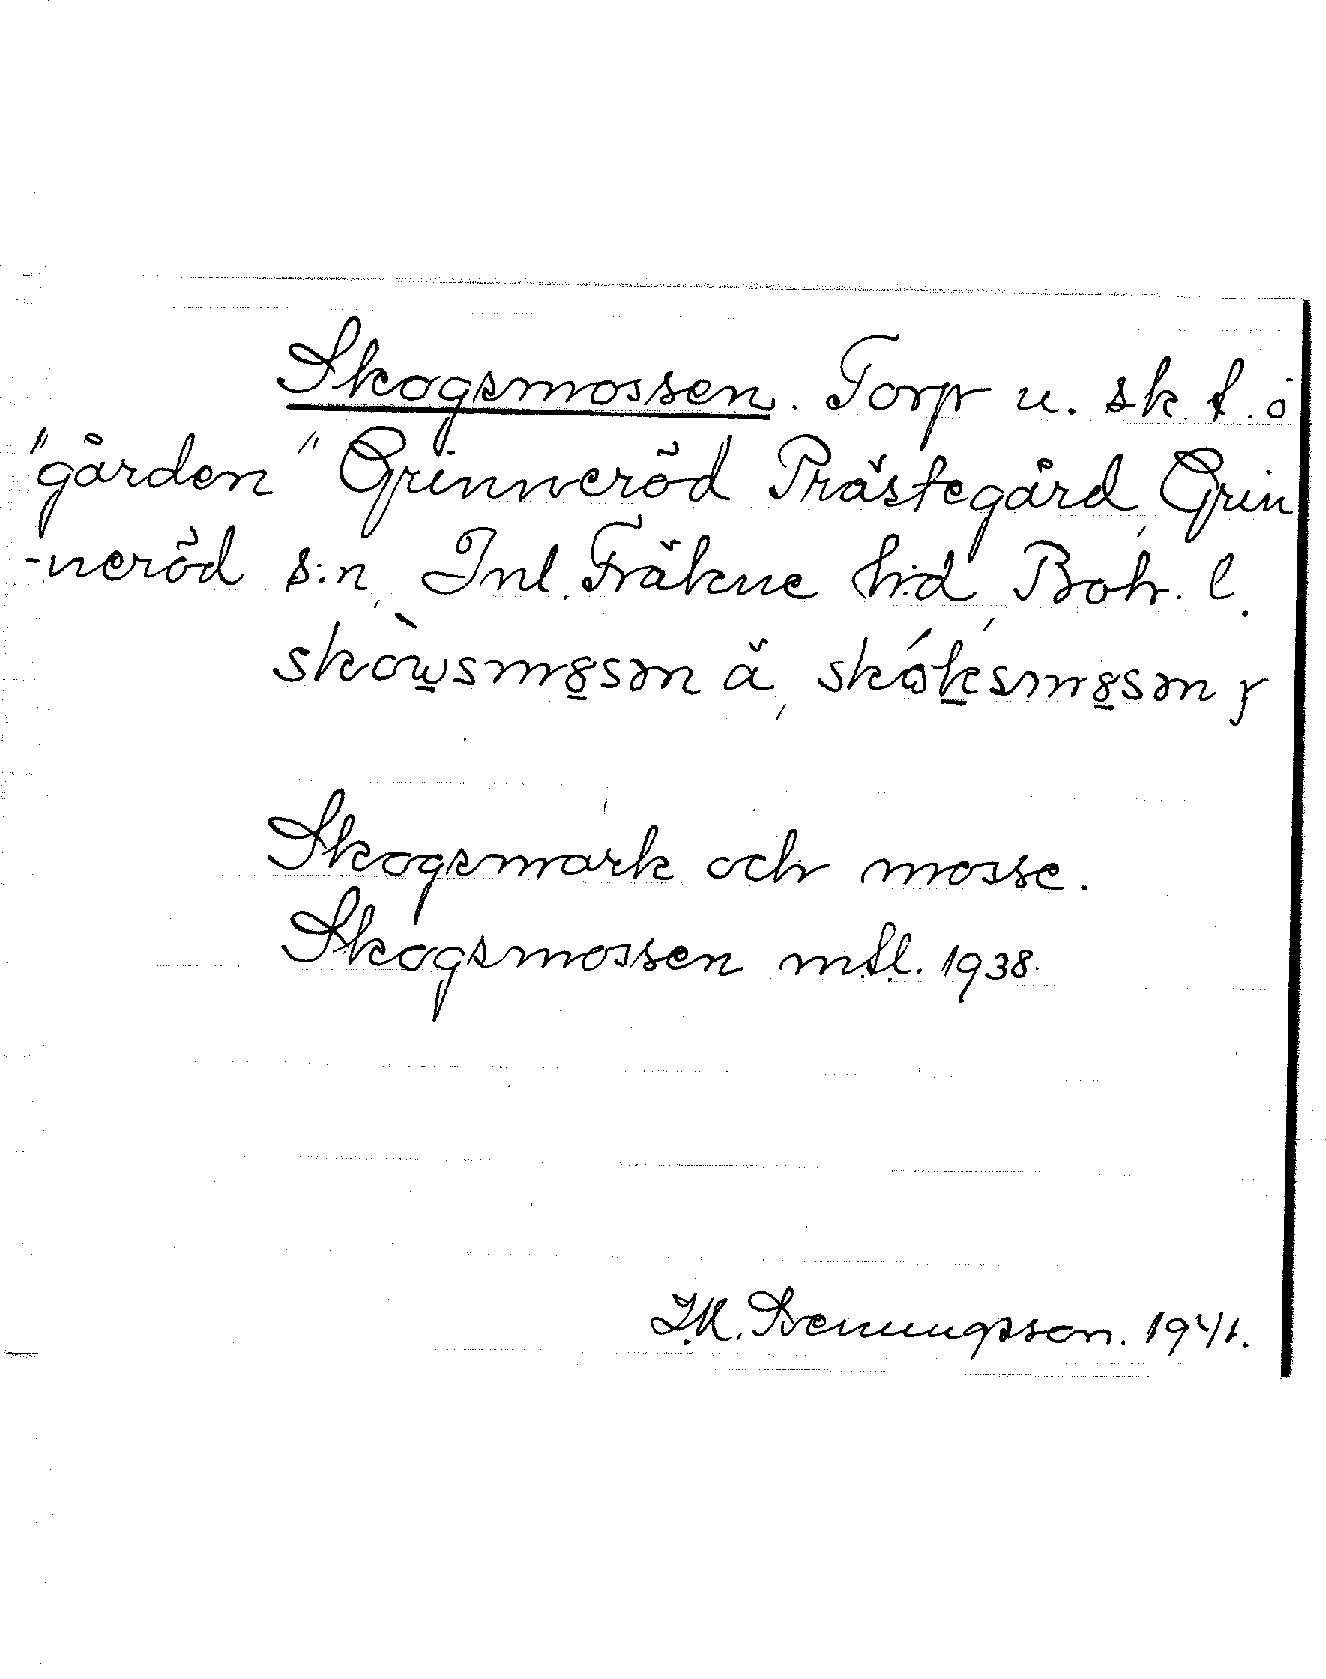 Skogsmossen. Torp u. sk f. ö
"gården" Grinneröd Prästegård, Grin
-neröd s:n, Inl. Fräkne hd, Boh. l.
skòw̲smȣ̲sən ä, skókֽ̲smȣ̲sən y
Skogsmark och mosse.
Skogsmossen mtl. 1938.
1941.